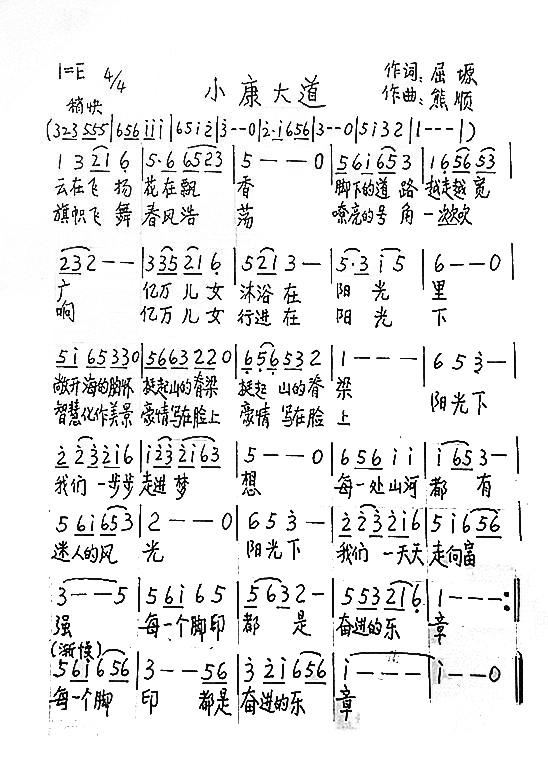 1=E 4/4
小康大道
作词:屈塬
作曲:熊顺
稍快
(323 555|656 i i i|65 i 2|3--0|2·i 656|3--0|5 i 3 2|1---|)
1 3 21 6|5·6 6523|5--0|561653|165653|
云在飞扬 花在飘 香 脚下的道路 越走越宽
旗帜飞舞 春风浩 荡 嘹亮的号角 一次次吹
232--|335 21 6|5 21 3-|5·3 i 5|6--0|
广 亿万儿女 沐浴在 阳光 里
响 亿万儿女 行进在 阳光 下
5i 65330|5663220|656532|1---|653-|
敞开海的胸怀 挺起山的脊梁 挺起山的脊 梁 阳光下
智慧化作美景 豪情写在脸上 豪情写在脸 上
2 2232i6|i232i63|5--0|656ii|i653-|
我们一步步 走进梦 想 每一处山河 都有
56i653|2--0|653-|22232i6|5i656|
迷人的风 光 阳光下 我们一天天 走向富
3--5|56i65|5632-|55321 6|1---:‖
强 每一个脚印 都是 奋进的乐 章
(渐慢)
56i656|3--56|32i656|i---|i--0‖
每一个脚 印 都是 奋进的乐 章